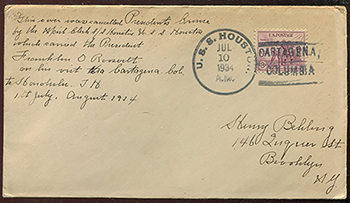 This cover was cancelled Presidents Cruise
by the Mail Clerk U.S.S. Houston
which carried the President
Franklin D Roosevelt
on his visit Cartagena, Col.
to Honolulu, T.H.
1st July. August 1934
U.S.S. HOUSTON.
JUL
10
1934
A.M.
U.S. POSTAGE
CARTAGENA,
COLUMBIA
Henry Behling
146 St
Brooklyn
N.Y